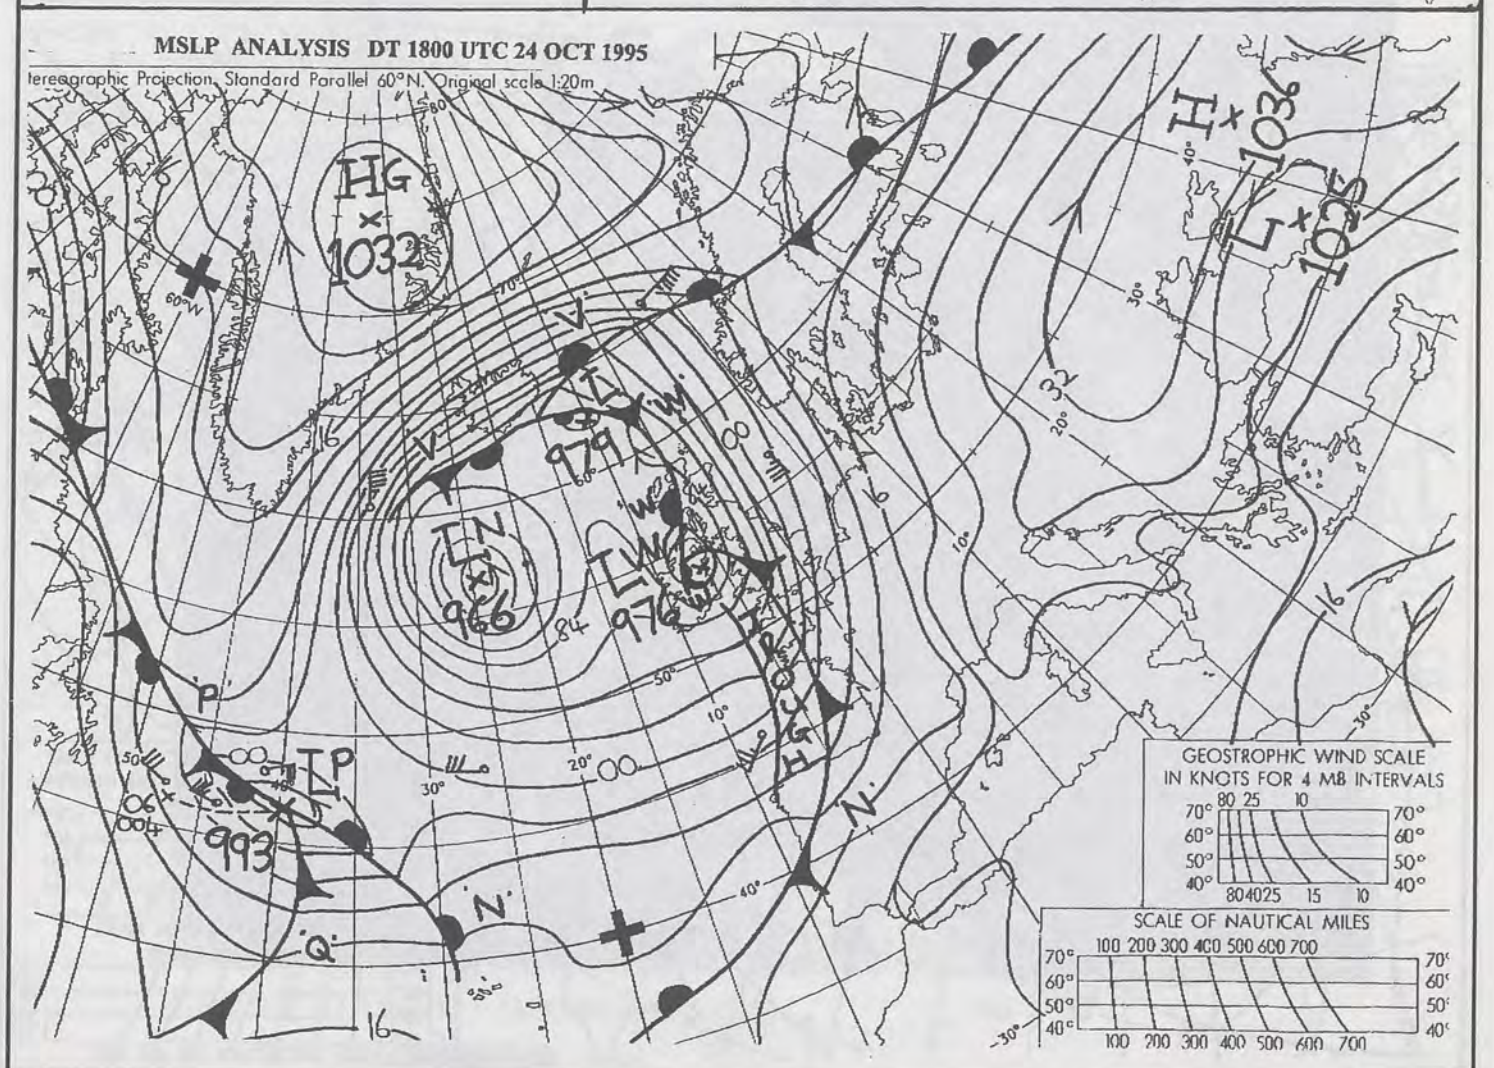 MSLP ANALYSIS DT 1800 UTC 24 OCT 1995
tereographic Projection, Standard Parallel 60°N. Original scale 1:20m
80
H G
1032
H
1036
40°
L
1025
60°W
70°
'V'
30°
32
20°
16
V
L
979
'W'
00
60°
16
L N
966
'W'
L W
976
W
10°
84
TROUGH
16
50°
10°
'P'
50°
00
L P
40°
30°
20°
00
06
004
993
'N'
N'
40°
'Q'
16
30°
30°
GEOSTROPHIC WIND SCALE
IN KNOTS FOR 4 MB INTERVALS
80 25 10
70° 70°
60° 60°
50° 50°
40° 40°
80 40 25 15 10
SCALE OF NAUTICAL MILES
100 200 300 400 500 600 700
70° 70°
60° 60°
50° 50°
40° 40°
100 200 300 400 500 600 700